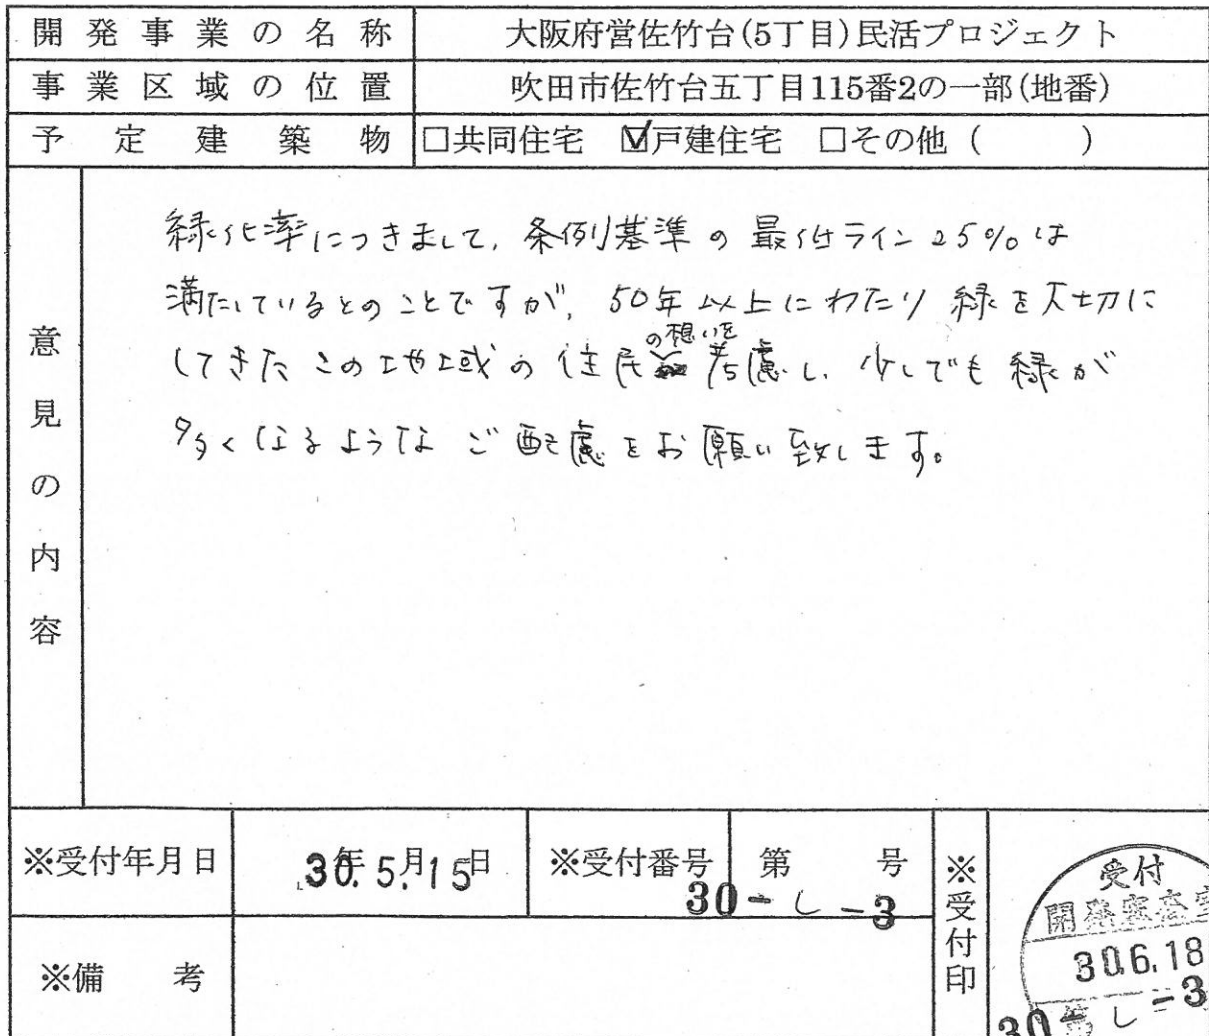 開発事業の名称 大阪府営佐竹台(5丁目)民活プロジェクト
事業区域の位置 吹田市佐竹台五丁目115番2の一部(地番)
予定建築物 □共同住宅 ☑戸建住宅 □その他( )
意見の内容
緑化率につきまして、条例基準の最低ライン25%は
満たしているとのことですが、50年以上にわたり緑を大切に
してきたこの地域の住民の想いを考慮し、少しでも緑が
多くなるようなご配慮をお願い致します。
※受付年月日 30年5月15日 ※受付番号 第 号
30-し-3
※受付印
受付
開発審査室
30.6.18
30-し-3
※備考